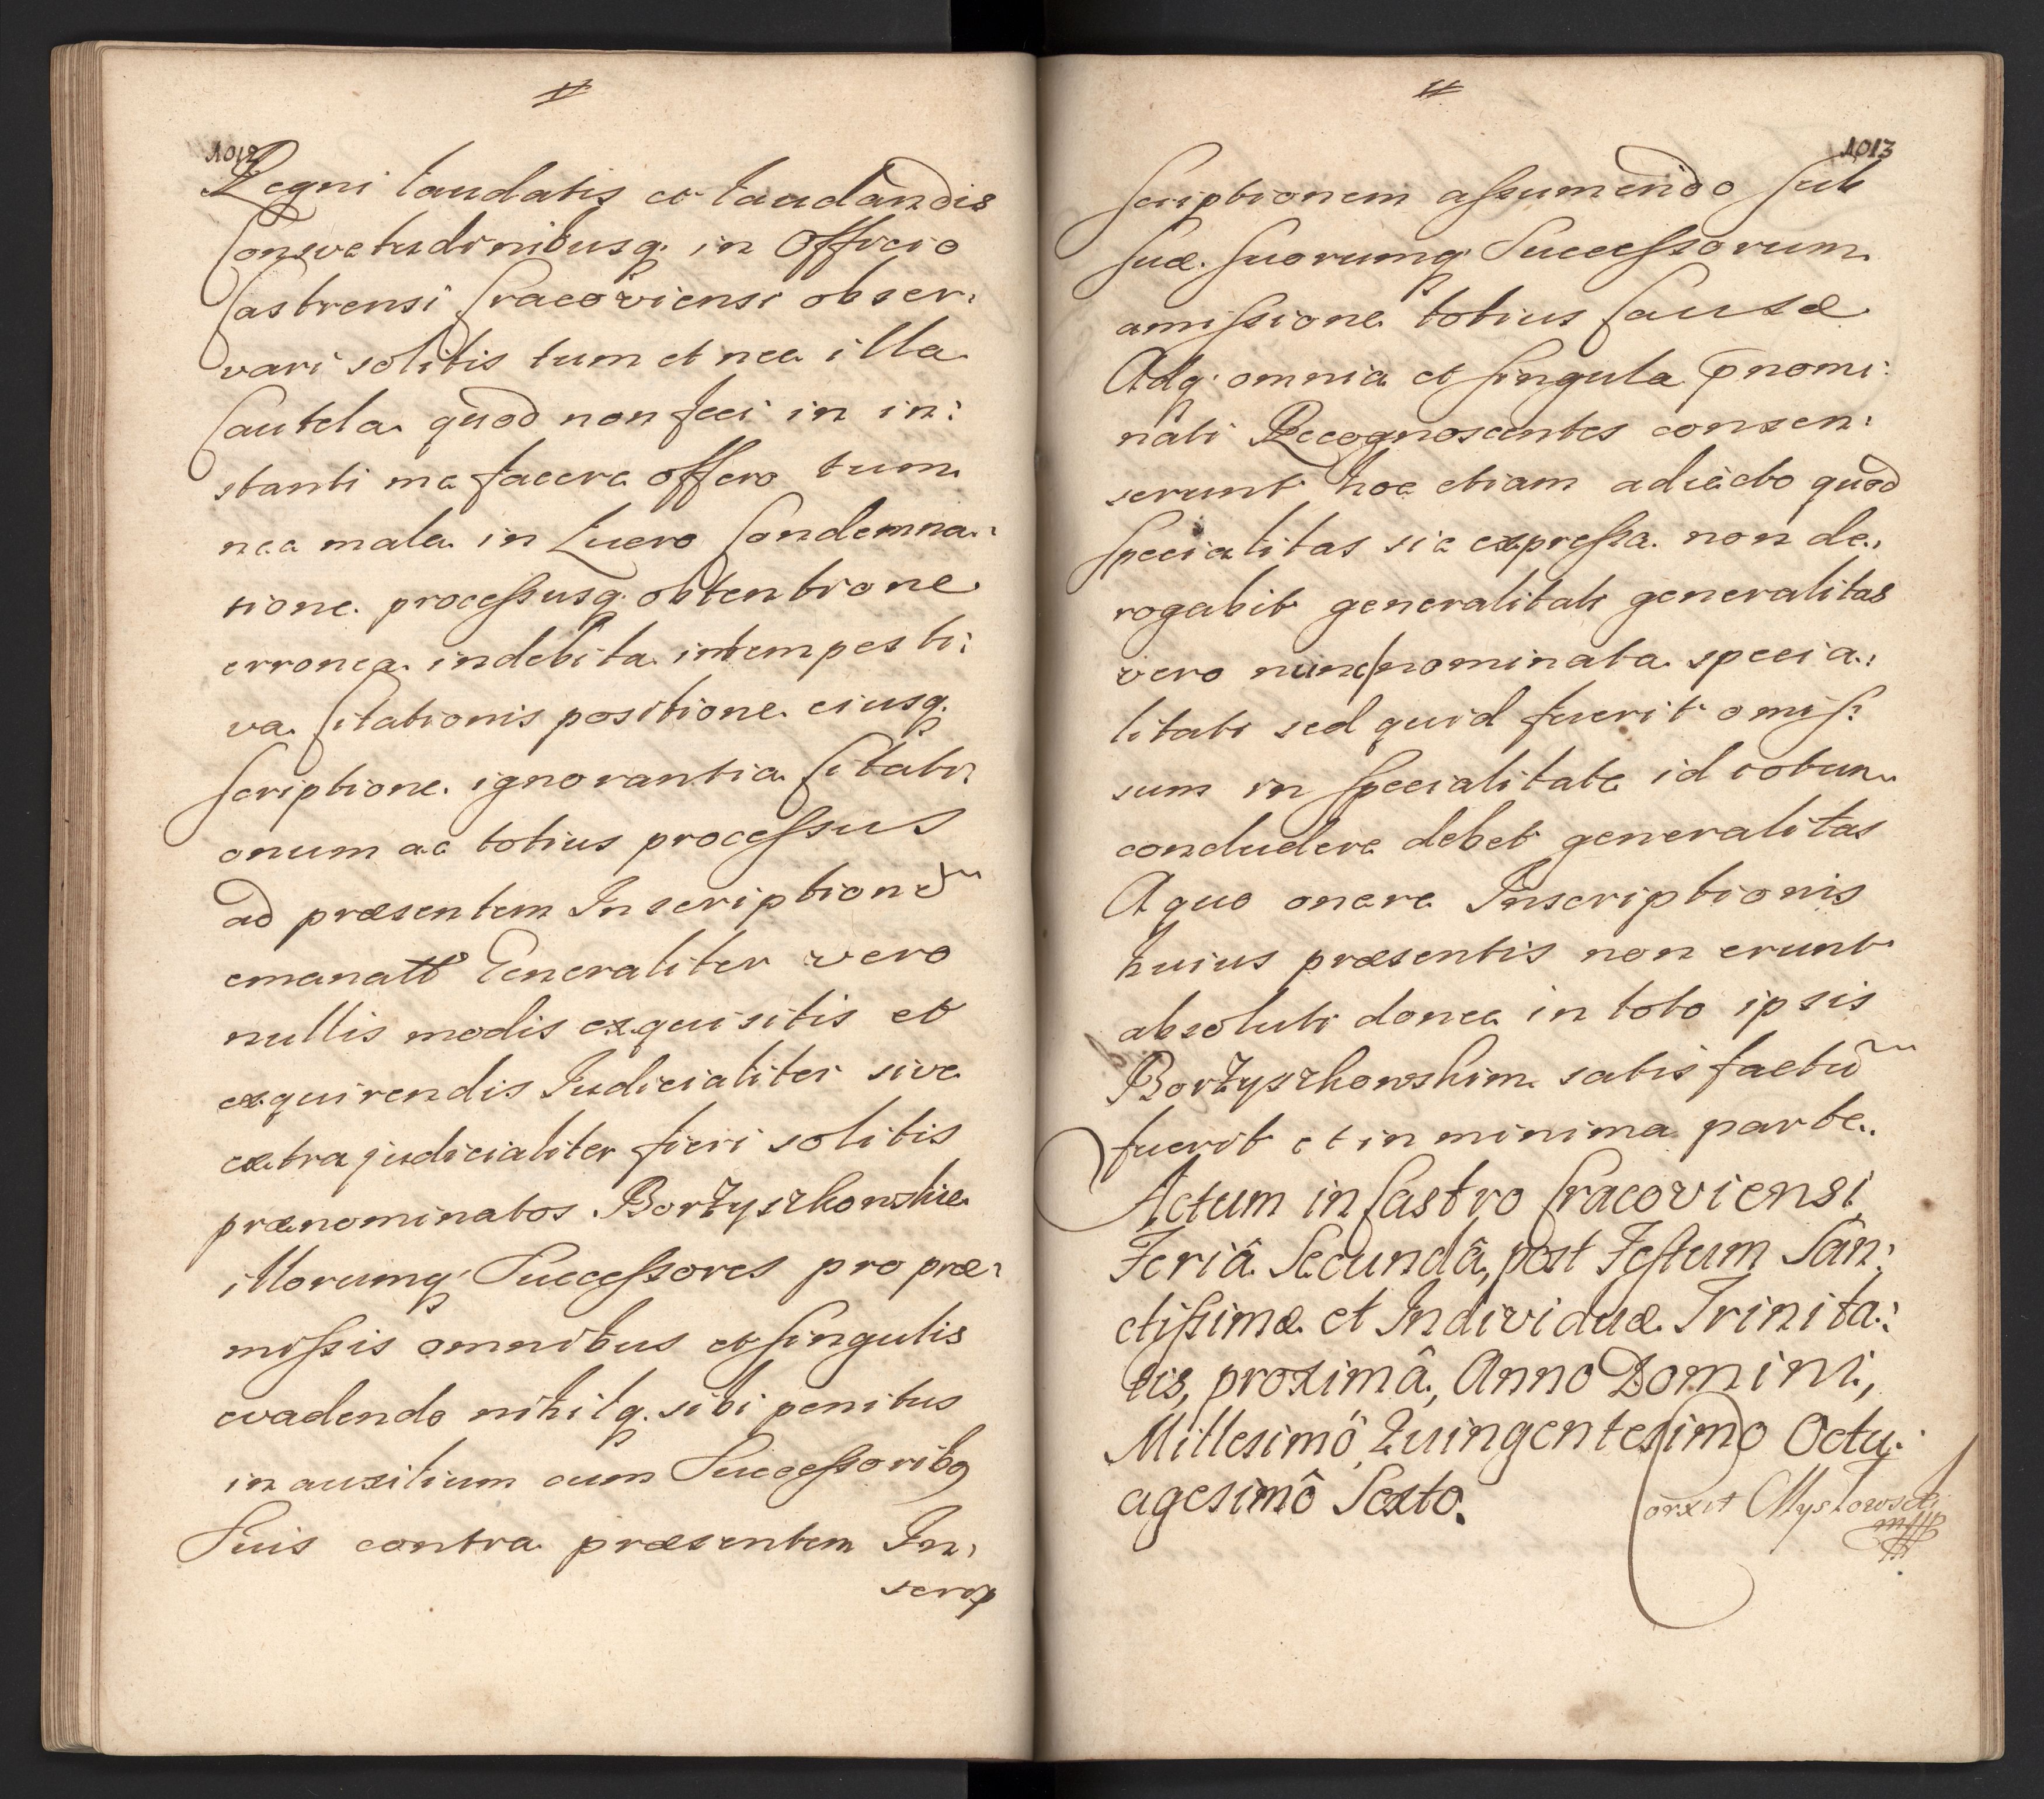 1012
Regni laudatis et laudandis
Consvetudinibusq. in Officio
Castrensi Cracoviensi obser:
vari solitis tum et nec illa
Cautela quod non feci in in:
stanti me facere offero tum
nec mala in Lucro Condemna:
tione processusq. obtentione
erronea indebita intempesti:
va Citationis positione eiusq.
scriptione ignorantia Citati:
onum ac totius processus
ad præsentem Inscriptione
emanatt Generaliter vero
nullis modis exquisitis et
exquirendis Iudicialiter sive
extrajudicialiter fieri solitis
prænominatos Borzyszkowskie
illorumq. Successores pro præ:
missis omnibus et singulis
evadendo nihilq. sibi penitus
in auxilium cum Successoribq
Suis contra præsentem In:
scrip
1013
scriptionem assumendo sub
sue suorumq. Successorum
amissione totius Causæ
Adq. omnia et singula pnomi:
nati Recognoscentes consen:
serunt hoc etiam adiecto quod
specialitas sic expressa non de:
rogabit generalitati generalitas
vero nuncnominata specia:
litati sed quid fuerit omis:
sum in specialitate id totum
concludere debet generalitas
A quo onere Inscriptionis
huius præsentis non erunt
absoluti donec in toto ipsis
Borzyszkowskim satisfactu
fuerit et in minima parte.
Actum in Castro Cracoviensi
Feriâ Secundâ, post Festum San:
ctissimæ et Individuæ Trinita:
tis, proximâ, Anno Domini,
Millesimô, Quingentesimo Octu:
agesimô Sexto.
Corxit Mysłowski
mpp